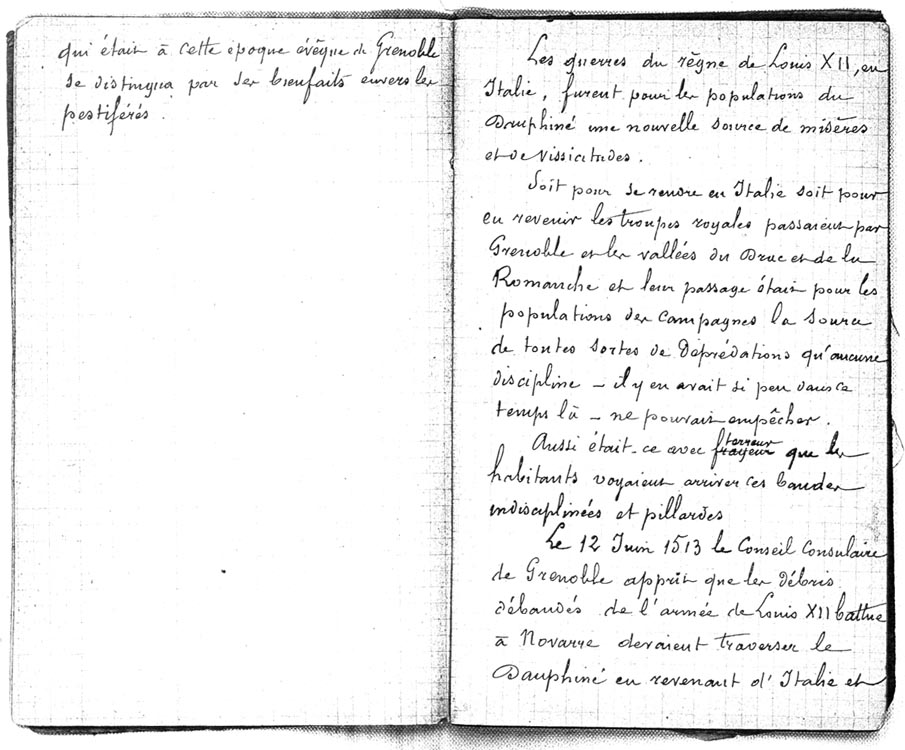 qui était à cette époque évêque de Grenoble
se distingua par ses bienfaits envers les
pestiférés.
Les guerres du règne de Louis XII, en
Italie, furent pour les populations du
Dauphiné une nouvelle source de misères
et de vissicitudes.
Soit pour se rendre en Italie soit pour
en revenir les troupes royales passaient par
Grenoble et les vallées du Drac et de la
Romanche et leur passage était pour les
populations des campagnes la source
de toutes sortes de déprédations qu'aucune
discipline – il y en avait si peu dans ce
temps là – ne pouvait empêcher.
Aussi était-ce avec frayeur terreur que les
habitants voyaient arriver ces bandes
indisciplinées et pillardes
Le 12 Juin 1513 le Conseil Consulaire
de Grenoble apprit que les débris
débandés de l'armée de Louis XII battue
à Novarre devaient traverser le
Dauphiné en revenant d'Italie et